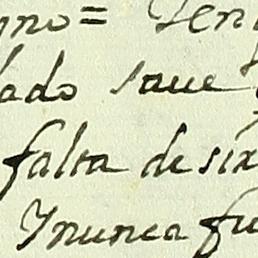 ado saue
falta de six
Ynunca fu